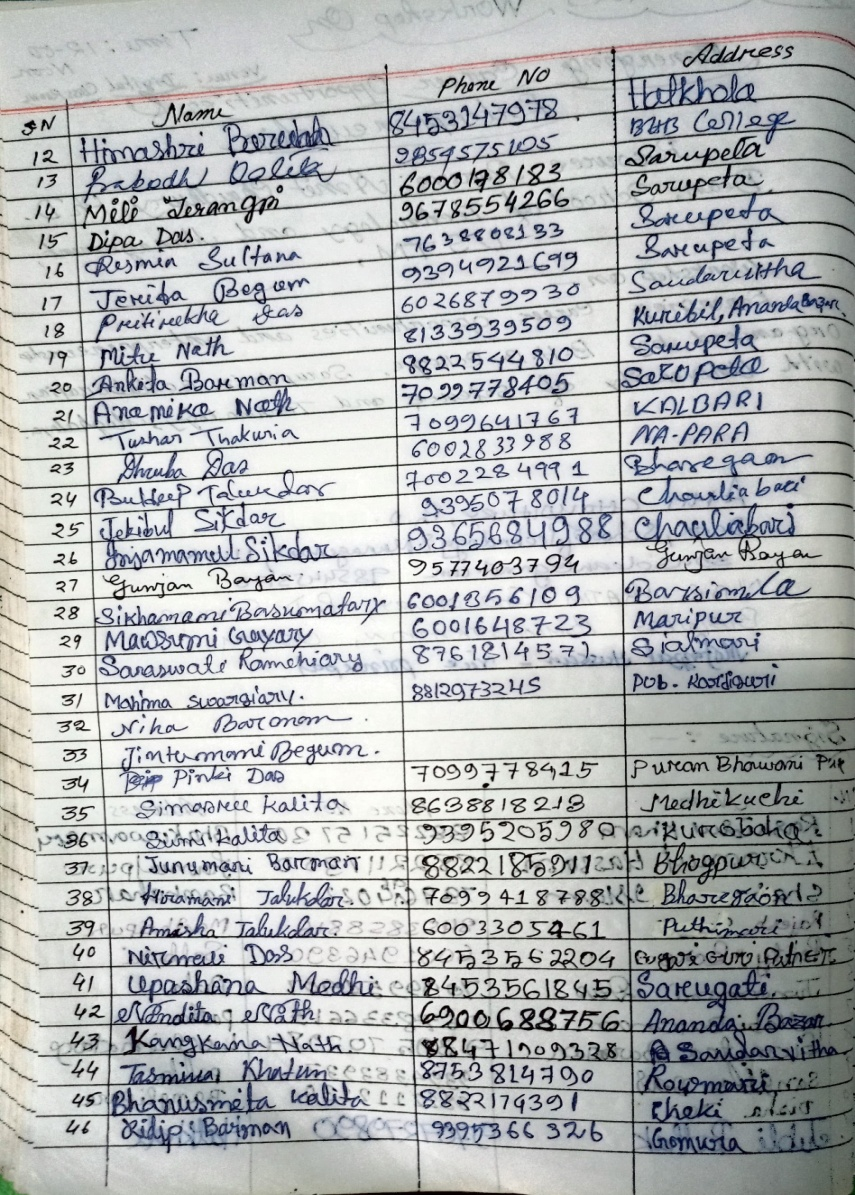 SN Name Phone No Address
12 Himashri Boruah 8453147978 Hatkhola
13 Prabodh 9854575105 BHB College
14 Mili Terangpi 6000178183 Sarupeta
15 Dipa Das. 9678554266 Sarupeta
16 Resmin Sultana 7638808133 Sarupeta
17 Jerifa Begum 9394921699 Sarupeta
18 Pritirekha Das 6026879930 Saudarvittha
19 Mitu Nath 8133939509 Kuribil, Ananda Bazar
20 Ankita Barman 8822544810 Sarupeta
21 Anamika Nath 7099778405 Sarupeta
22 Tushar Thakuria 7099641767 KALBARI
23 Dhruba Das 6002833988 NA-PARA
24 Talukdar 7002284991 Bharegaon
25 Jekibul Sikdar 9395078014 Chaurliabari
26 Injamamul Sikdar 9365684988 Chaurliabari
27 Gunjan Bayan 9577403794 Gunjan Bayan
28 Sikhamani Basumatary 6001856109
29 Mawsumi Gayary 6001648723 Maripur
30 Saraswati Ramchiary 8761814571 Sialmari
31 Mahima swargiary. 8812973245 Pub.
32 Niha
33 Jintumani Begum.
34 Pinki Das 7099778415 Puran Bhawani Pur
35 Simasree Kalita 8638818213 Medhikuchi
36 Sumi Kalita 9395205980 Kurobaha
37 Junumani Barman 8822185911 Bhogpur
38 Hiramani Talukdar. 7099418788 Bharegaon
39 Amisha Talukdar. 6003305461 Puthimari
40 Nirmali Das 8453562204
41 Upashana Medhi 8453561845 Sarugati.
42 Nandita Nath 6900688756 Ananda Bazar
43 Kangkana Nath. 88471909328 Saudarvitha
44 Tasmina Khatun 8753814790 Rowmari
45 Bhanusmita Kalita 8822174391 Kheki
46 Ridip Barman 9395366326 Gomura